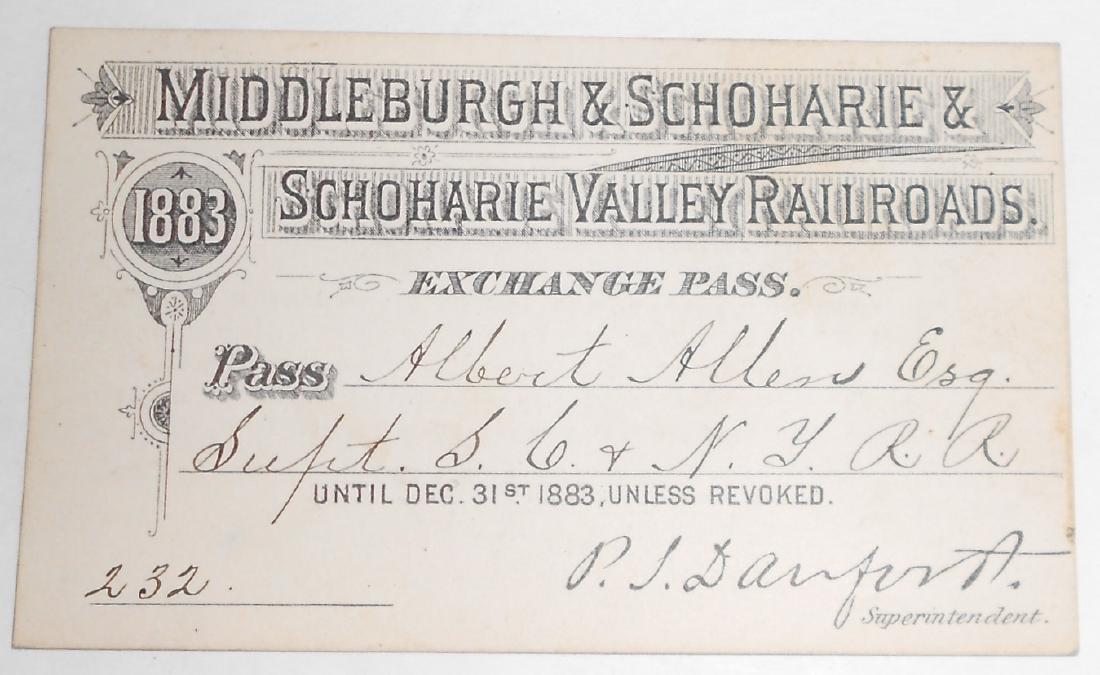 MIDDLEBURGH & SCHOHARIE &
1883
SCHOHARIE VALLEY RAILROADS.
EXCHANGE PASS.
Pass Albert Allen Esq.
Supt. S. C. & N. Y. R. R.
UNTIL DEC. 31ST 1883, UNLESS REVOKED.
232.
P. S. Danforth.
Superintendent.